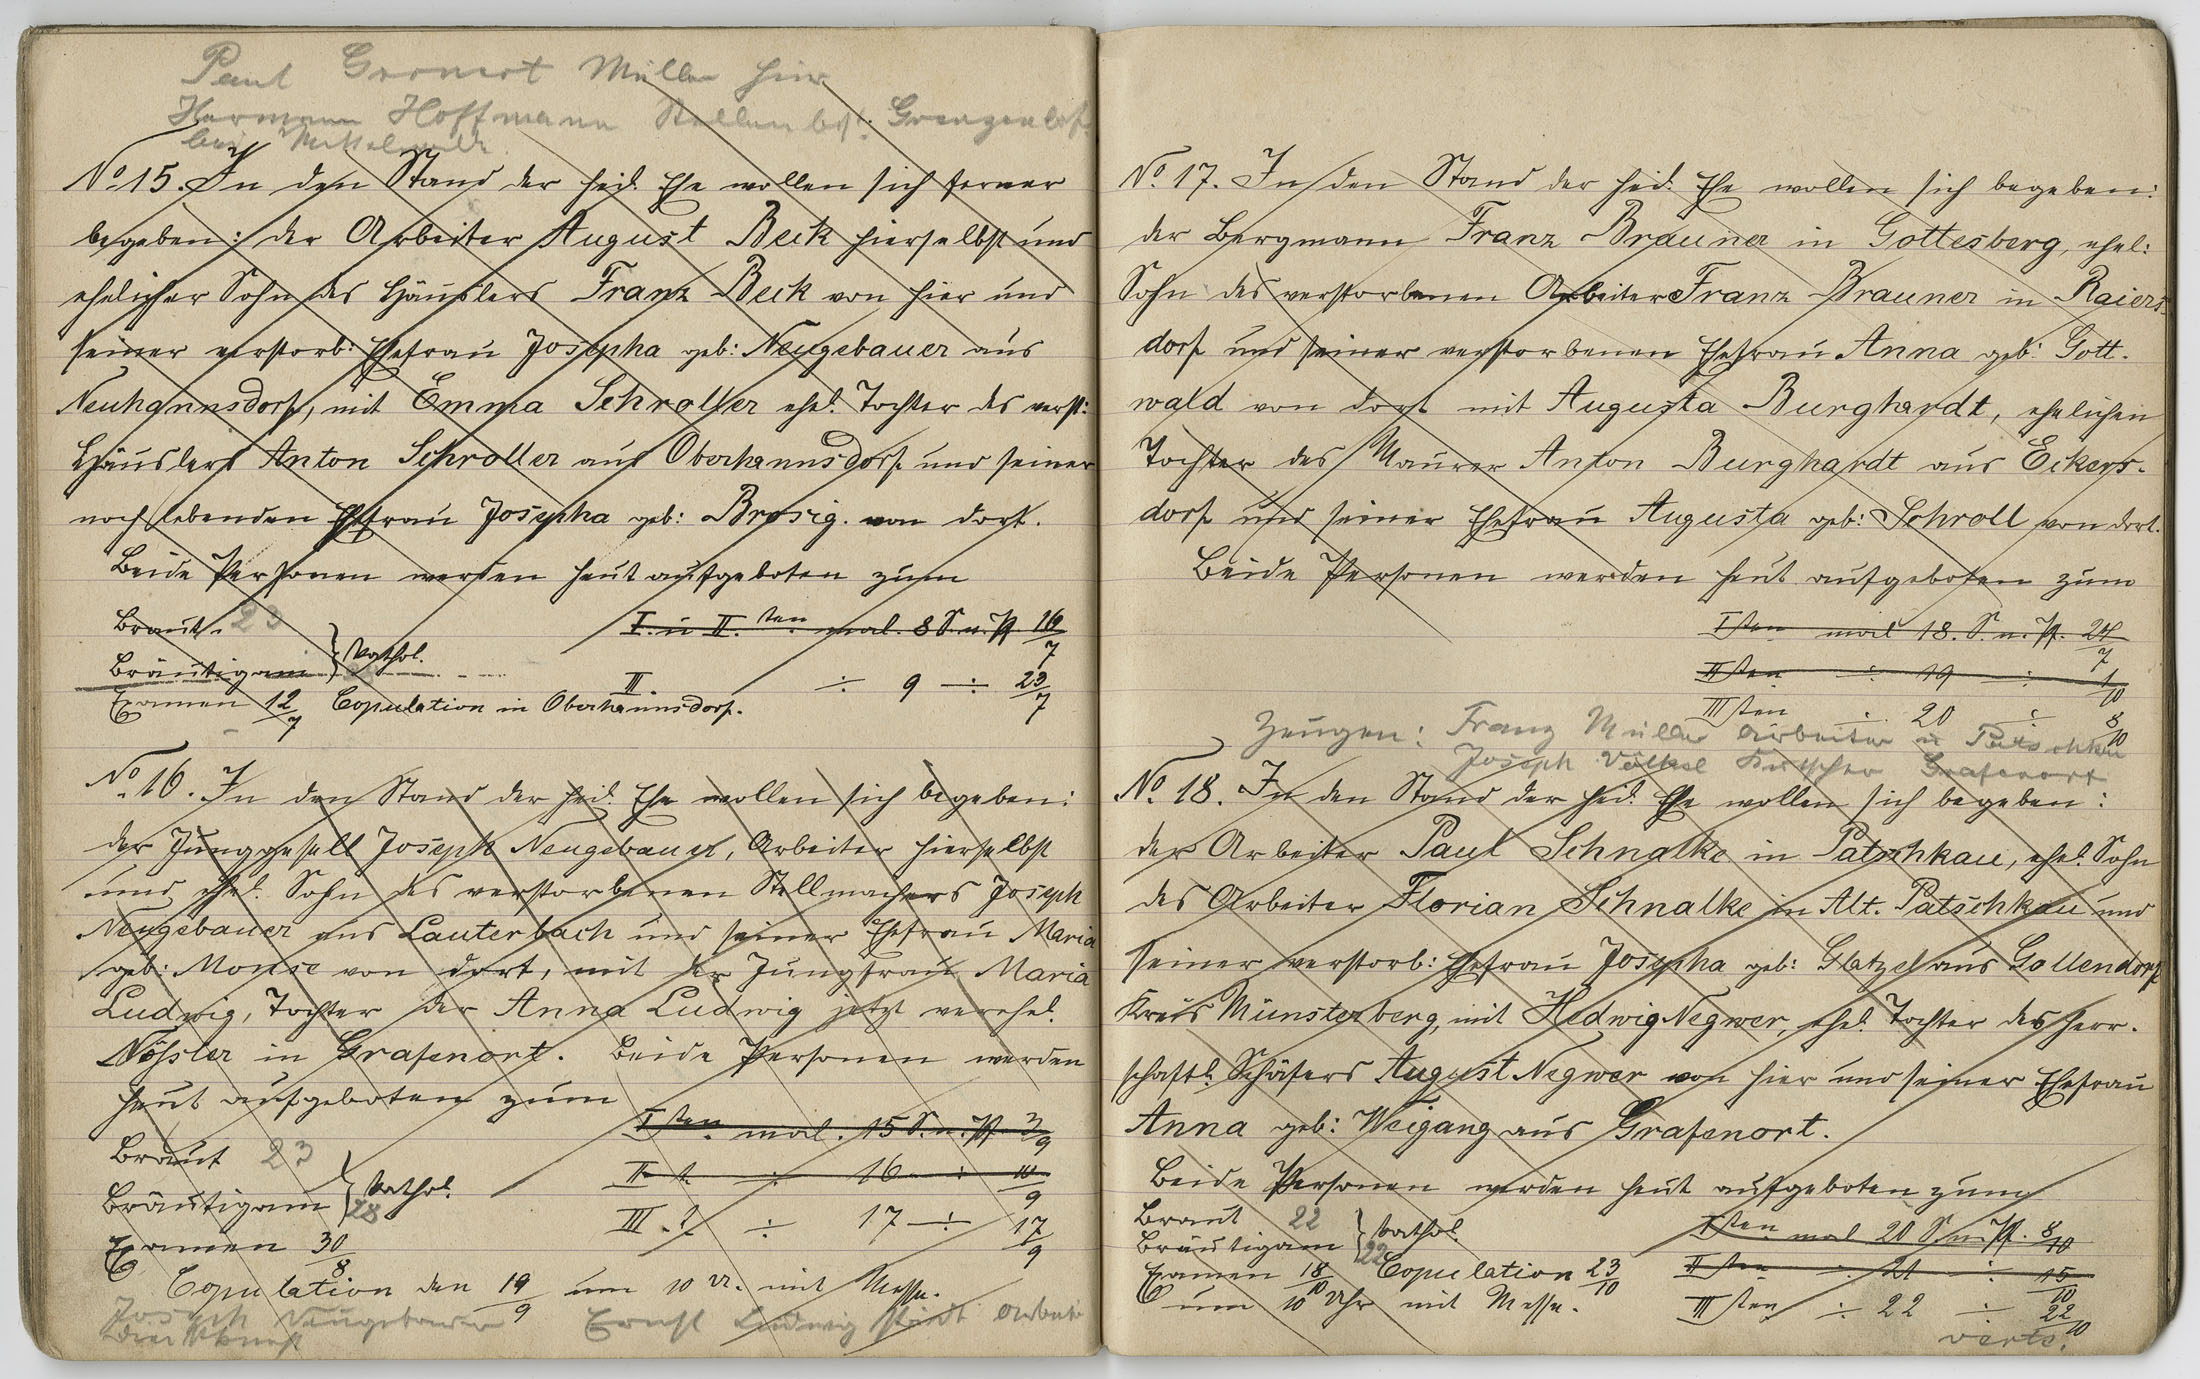 Paul Gronert Müller hier
Hermann Hoffmann Stellenbes:
bei Mittelwalde.
No 15. In den Stand der heil. Ehe wollen sich ferner
begeben: der Arbeiter August Beck hierselbst und
ehelicher Sohn des Häuslers Franz Beck von hier und
seiner verstorb: Ehefrau Josepha geb: Neugebauer aus
Neuhannsdorf, mit Emma Schroller ehel. Tochter des verst:
Häuslers Anton Schroller aus Oberhannsdorf und seiner
noch lebenden Ehefrau Josepha geb: Brosig. von dort.
Beide Personen werden heut aufgeboten zum
Braut. 23 I. u II. ten mal. 8 S. n. Pf. 16/7
Bräutigam } kathol. III. ÷ 9 ÷ 23/7
Examen 12/7 Copulation in Oberhannsdorf.
No 16. In den Stand der heil. Ehe wollen sich begeben:
der Junggesell Joseph Neugebauer, Arbeiter hierselbst
und ehel. Sohn des verstorbenen Stellmachers Joseph
Neugebauer aus Lauterbach und seiner Ehefrau Maria
geb: Monse von dort, mit der Jungfrau Maria
Ludwig, Tochter der Anna Ludwig jetzt verehel.
Nößler in Grafenort. Beide Personen werden
heut aufgeboten zum
I sten mal. 15 S. n. Pf. 3/9
Braut 23 II t. ÷ 16 ÷ 10/9
Bräutigam } kathol. 28 III. t. ÷ 17 ÷ 17/9
Examen 30/8
Copulation den 19/9 um 10 U. mit Messe.
Joseph Neugebauer Ernst Ludwig Arbeiter
No. 17. In den Stand der heil. Ehe wollen sich begeben:
der Bergmann Franz Brauner in Gottesberg, ehel:
Sohn des verstorbenen Arbeiters Franz Brauner in Raiers-
dorf und seiner verstorbenen Ehefrau Anna geb: Gott-
wald von dort mit Augusta Burghardt, ehelichen
Tochter des Maurer Anton Burghardt aus Eckers-
dorf und seiner Ehefrau Augusta geb: Schroll von dort.
Beide Personen werden heut aufgeboten zum
I sten mal 18. S. n. Pf. 24/7
II sten ÷ 19 ÷ 1/10
III sten ÷ 20 ÷ 8/10
Zeugen: Franz Müller Arbeiter in Patschkau
Joseph Völkel Kutscher Grafenort
No. 18. In den Stand der heil. Ehe wollen sich begeben:
der Arbeiter Paul Schnalke in Patschkau, ehel. Sohn
des Arbeiter Florian Schnalke in Alt. Patschkau und
seiner verstorb: Ehefrau Josepha geb: Glatzel aus Gallendorf
Kreis Münsterberg, mit Hedwig Negwer, ehel. Tochter des herr-
schaftl. Schäfers August Negwer von hier und seiner Ehefrau
Anna geb: Weigang aus Grafenort.
Beide Personen werden heut aufgeboten zum
Braut 22 I sten mal 20 S. n. Pf. 8/10
Bräutigam } kathol. 22 II sten ÷ 21 ÷ 15/10
Examen 18/10 Copulation 23/10 III sten ÷ 22 ÷ 22/10
um 10 Uhr mit Messe.
verte.